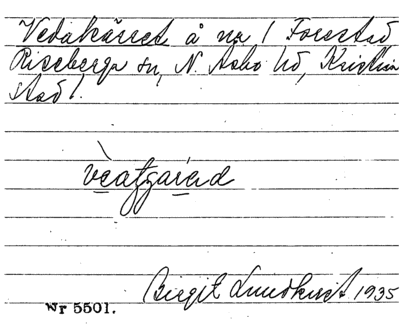 Vedakärret å na 1 Forestad
Riseberga sn, N. Åsbo hd, Kristian
stad l.
vèafgarad
Birgit Lundkvist 1935
Nr 5501.